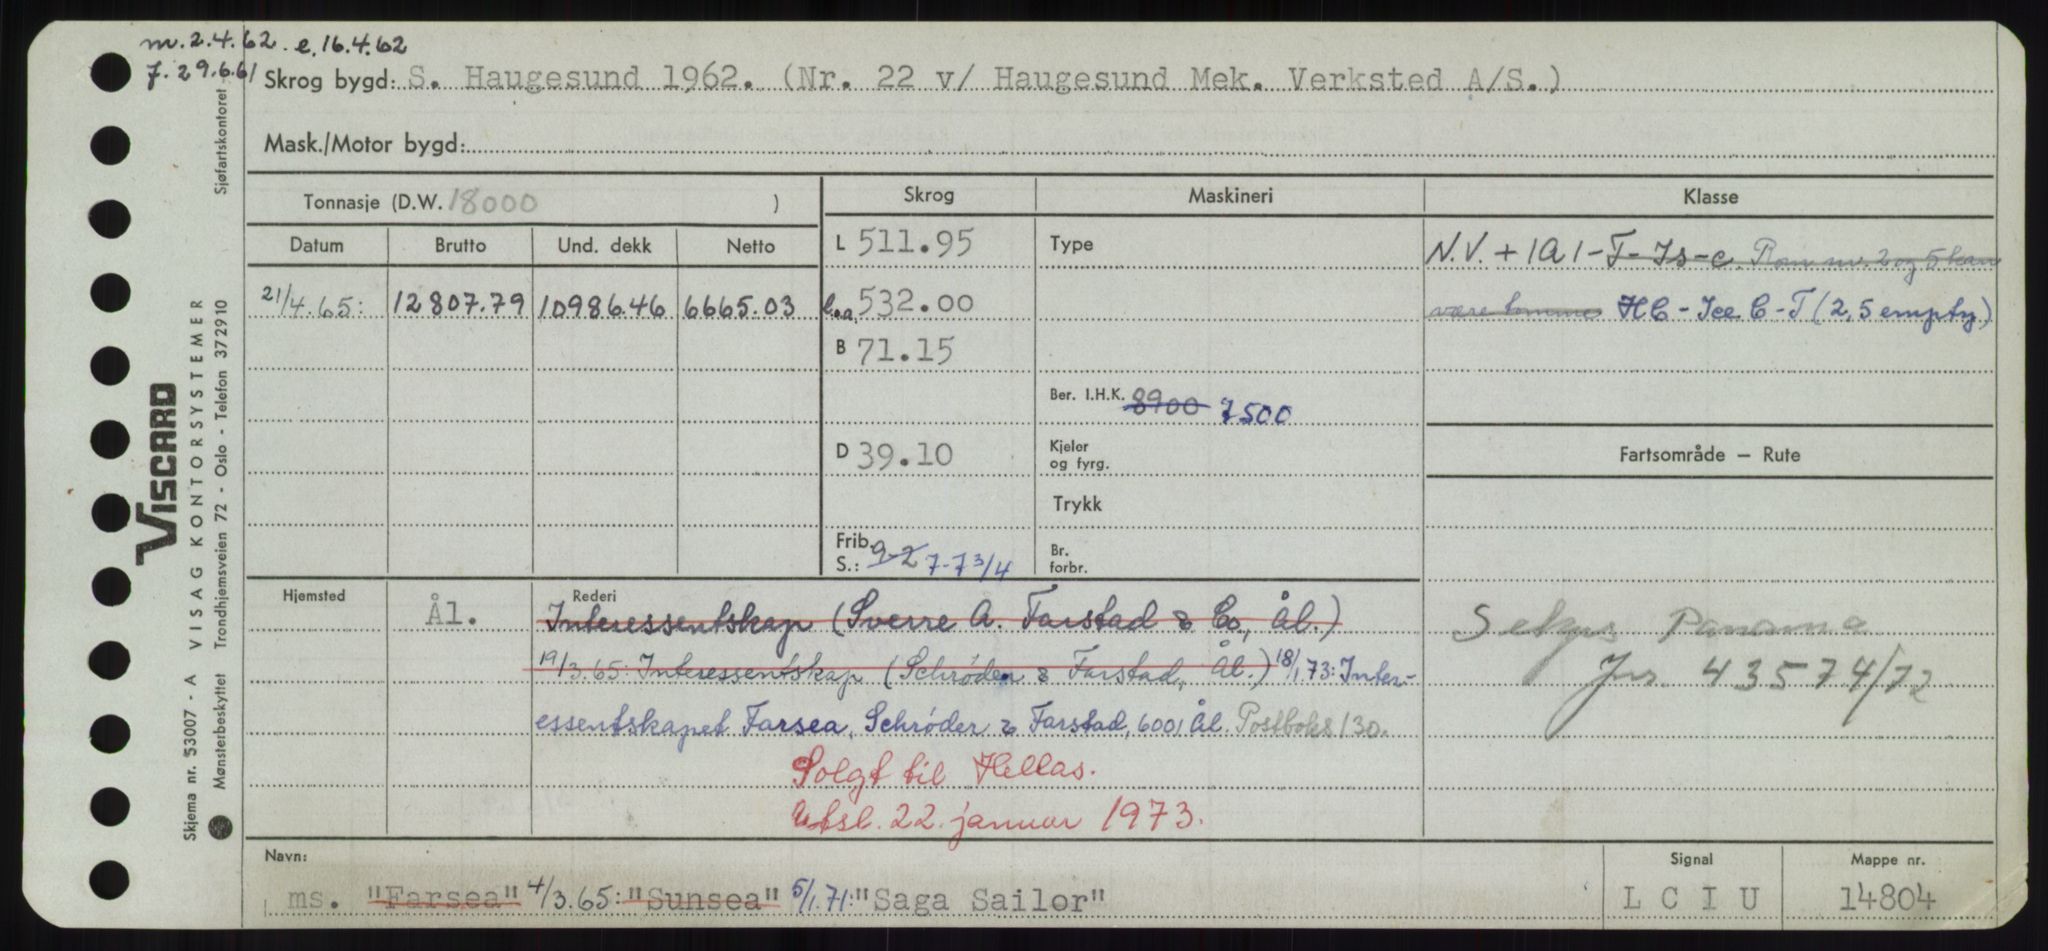 m. 2.4.62. e. 16.4.62
7. 29.6.61
Skrog bygd: S. Haugesund 1962. (Nr. 22 v/ Haugesund Mek. Verksted A/S.)
Mask./Motor bygd:
Tonnasje (D.W. 18000 )
Skrog
Maskineri
Klasse
Datum
Brutto
Und. dekk
Netto
21/4.65:
12807.79
10986.46
6665.03
L 511.95
L.a. 532.00
B 71.15
D 39.10
Frib. S.: 9-2 7-7 3/4
Type
Ber. I.H.K. 8900 7500
Kjeler og fyrg.
Trykk
Br. forbr.
N.V. + 1A1-T-Is-c. Rom nr. 2 og 5 kan
være tomme HC - Ice C - T (2,5 empty)
Fartsområde — Rute
Hjemsted
Ål.
Rederi
Interessentskap (Sverre A. Farstad & Co., Ål.)
19/3.65: Interessentskap (Schrøder & Farstad, Ål.) 18/1,73: Inter-
essentskapet Farsea, Schrøder & Farstad, 6001 Ål. Postboks 130.
Solgt til Hellas.
Utsl. 22. januar 1973.
Panama
Jnr. 43574/72
Navn:
ms. "Farsea" 4/3.65: "Sunsea" 5/1.71: "Saga Sailor"
Signal
L C I U
Mappe nr.
14804
VISCARD
VISAG KONTORSYSTEMER
Sjøfartskontoret
Trondhjemsveien 72 - Oslo - Telefon 372910
Skjema nr. 53007 - A
Mønsterbeskyttet